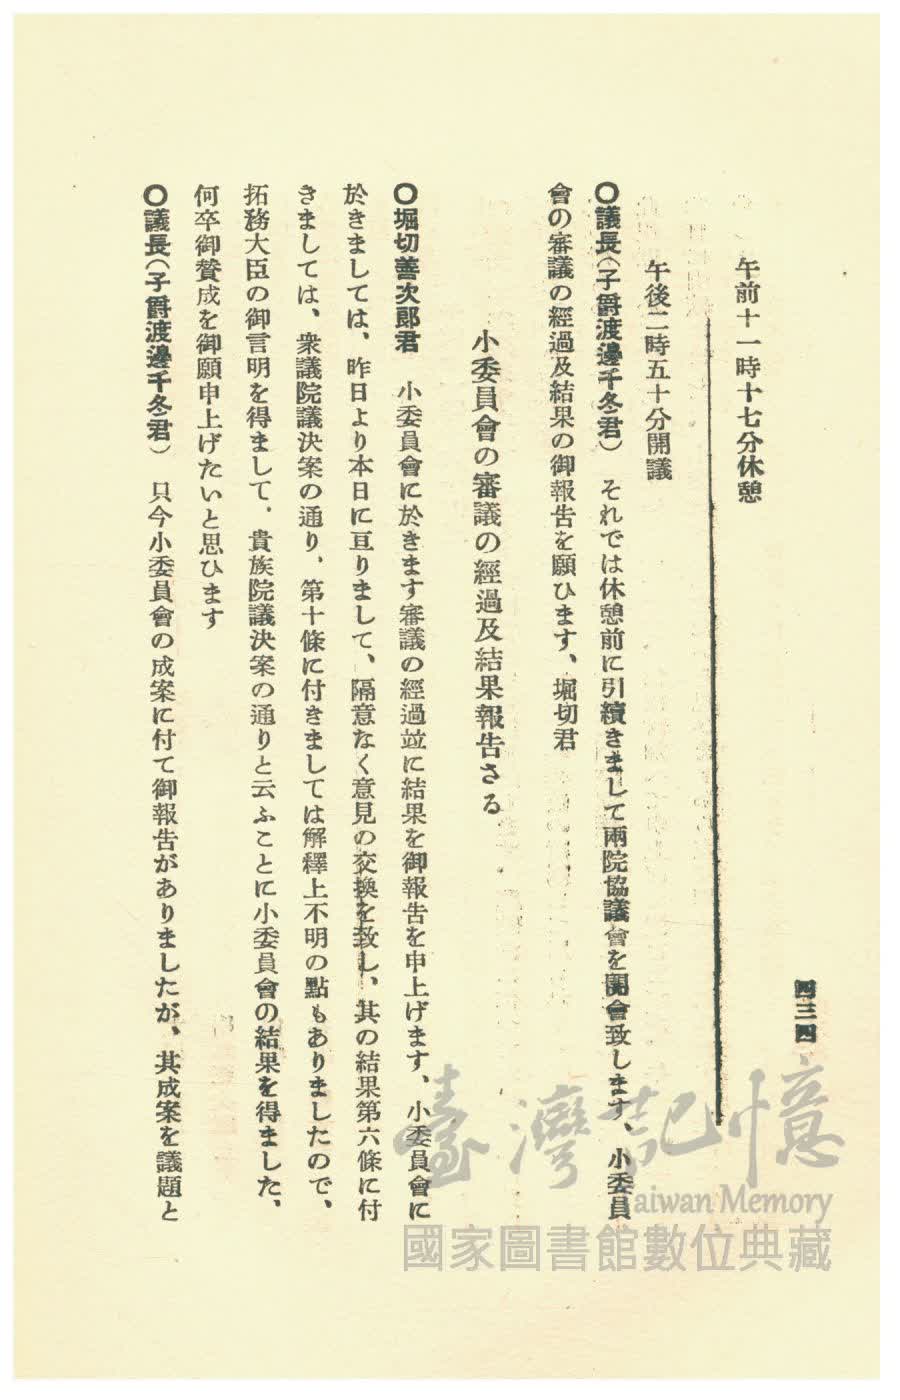 四三四
午前十一時十七分休憩
午後二時五十分開議
〇議長（子爵渡邊千冬君）　それでは休憩前に引續きまして兩院協議會を開會致します、小委員
會の審議の經過及結果の御報告を願ひます、堀切君
小委員會の審議の經過及結果報告さる
〇堀切善次郎君　小委員會に於きます審議の經過竝に結果を御報告を申上げます、小委員會に
於きましては、昨日より本日に亘りまして、隔意なく意見の交換を致し、其の結果第六條に付
きましては、衆議院議決案の通り、第十條に付きましては解釋上不明の點もありましたので、
拓務大臣の御言明を得まして、貴族院議決案の通りと云ふことに小委員會の結果を得ました、
何卒御贊成を御願申上げたいと思ひます
〇議長（子爵渡邊千冬君）　只今小委員會の成案に付て御報告がありましたが、其成案を議題と
臺灣記憶
Taiwan Memory
國家圖書館數位典藏